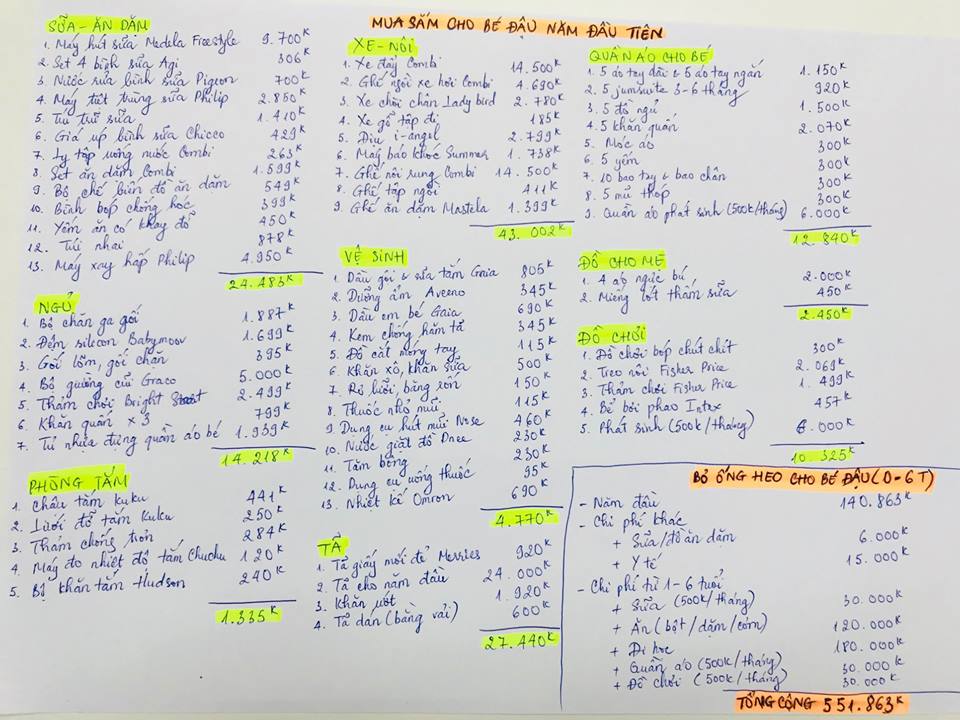 MUA SẮM CHO BÉ ĐẬU NĂM ĐẦU TIÊN
SỮA - ĂN DẶM
1. Máy hút sữa Medela Freestyle 9.700K
2. Set 4 bình sữa Agi 306K
3. Nước rửa bình sữa Pigeon 700K
4. Máy tiệt trùng sữa Philip 2.850K
5. Túi trữ sữa 1.410K
6. Giá úp bình sữa Chicco 429K
7. Ly tập uống nước Combi 263K
8. Set ăn dặm Combi 1.599
9. Bộ chế biến đồ ăn dặm 549K
10. Bình bóp chống hóc 399K
11. Yếm ăn có khay đổ 450K
12. Túi nhai 878K
13. Máy xay hấp Philip 4.950K
24.483K
NGỦ
1. Bộ chăn ga gối 1.887K
2. Đệm silicon Babymoov 1.699K
3. Gối lõm, gối chặn 395K
4. Bộ giường cũi Graco 5.000K
5. Thảm chơi Bright 2.499K
6. Khăn quấn x 3 799K
7. Tủ nhựa đựng quần áo bé 1.939K
14.218K
PHÒNG TẮM
1. Chậu tắm Kuku 441K
2. Lưới đỡ tắm Kuku 250K
3. Thảm chống trơn 284K
4. Máy đo nhiệt độ tắm Chuchu 120K
5. Bộ khăn tắm Hudson 240K
1.335K
XE - NÔI
1. Xe đẩy Combi 14.500K
2. Ghế ngồi xe hơi Combi 4.690K
3. Xe chòi chân Lady bird 2.780K
4. Xe gỗ tập đi 185K
5. Địu i-angel 2.799K
6. Máy báo khóc Summer 1.738K
7. Ghế nôi rung Combi 14.500K
8. Ghế tập ngồi 411K
9. Ghế ăn dặm Mastela 1.399K
43.002K
VỆ SINH
1. Dầu gội & sữa tắm Gaia 805K
2. Dưỡng ẩm Aveeno 345K
3. Dầu em bé Gaia 690K
4. Kem chống hăm tã 345K
5. Đồ cắt móng tay 115K
6. Khăn xô, khăn sữa 500K
7. Rơ lưỡi, băng rốn 150K
8. Thuốc nhỏ mũi 115K
9. Dụng cụ hút mũi Nose 460K
10. Nước giặt đồ Dnee 230K
11. Tăm bông 230K
12. Dụng cụ uống thuốc 95K
13. Nhiệt kế Omron 690K
4.770K
TÃ
1. Tã giấy mới đẻ Merries 920K
2. Tã cho năm đầu 24.000K
3. Khăn ướt 1.920K
4. Tã dán (bằng vải) 600K
27.440K
QUẦN ÁO CHO BÉ
1. 5 áo tay dài & 5 áo tay ngắn 1.150K
2. 5 jumsuite 3-6 tháng 920K
3. 5 đồ ngủ 1.500K
4. 5 khăn quấn 2.070K
5. Móc áo 300K
6. 5 yếm 300K
7. 10 bao tay & bao chân 300K
8. 5 mũ thóp 300K
9. Quần áo phát sinh (500K/tháng) 6.000K
12.840K
ĐỒ CHO MẸ
1. 4 áo ngực bú 2.000K
2. Miếng lót thấm sữa 450K
2.450K
ĐỒ CHƠI
1. Đồ chơi bóp chút chít 300K
2. Treo nôi Fisher Price 2.069K
3. Thảm chơi Fisher Price 1.499
4. Bể bơi phao Intex 457K
5. Phát sinh (500K/tháng) 6.000K
10.325K
BỎ ỐNG HEO CHO BÉ ĐẬU (0-6T)
- Năm đầu 140.863K
- Chi phí khác
+ Sữa/đồ ăn dặm 6.000K
+ Y tế 15.000K
- Chi phí từ 1-6 tuổi
+ Sữa (500K/tháng) 30.000K
+ Ăn (bột/dặm/cơm) 120.000K
+ Đi học 180.000K
+ Quần áo (500K/tháng) 30.000K
+ Đồ chơi (500K/tháng) 30.000K
TỔNG CỘNG 551.863K